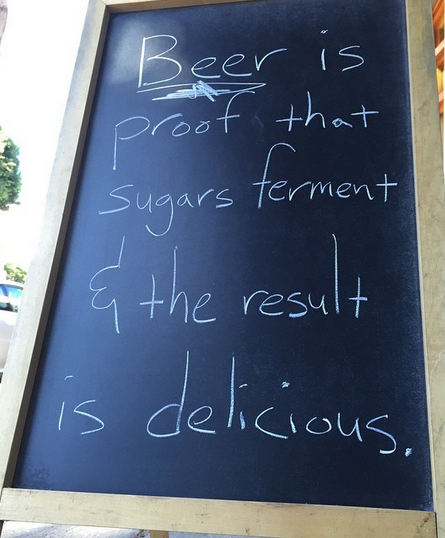 Beer is
proof that
sugars ferment
& the result
is delicious.